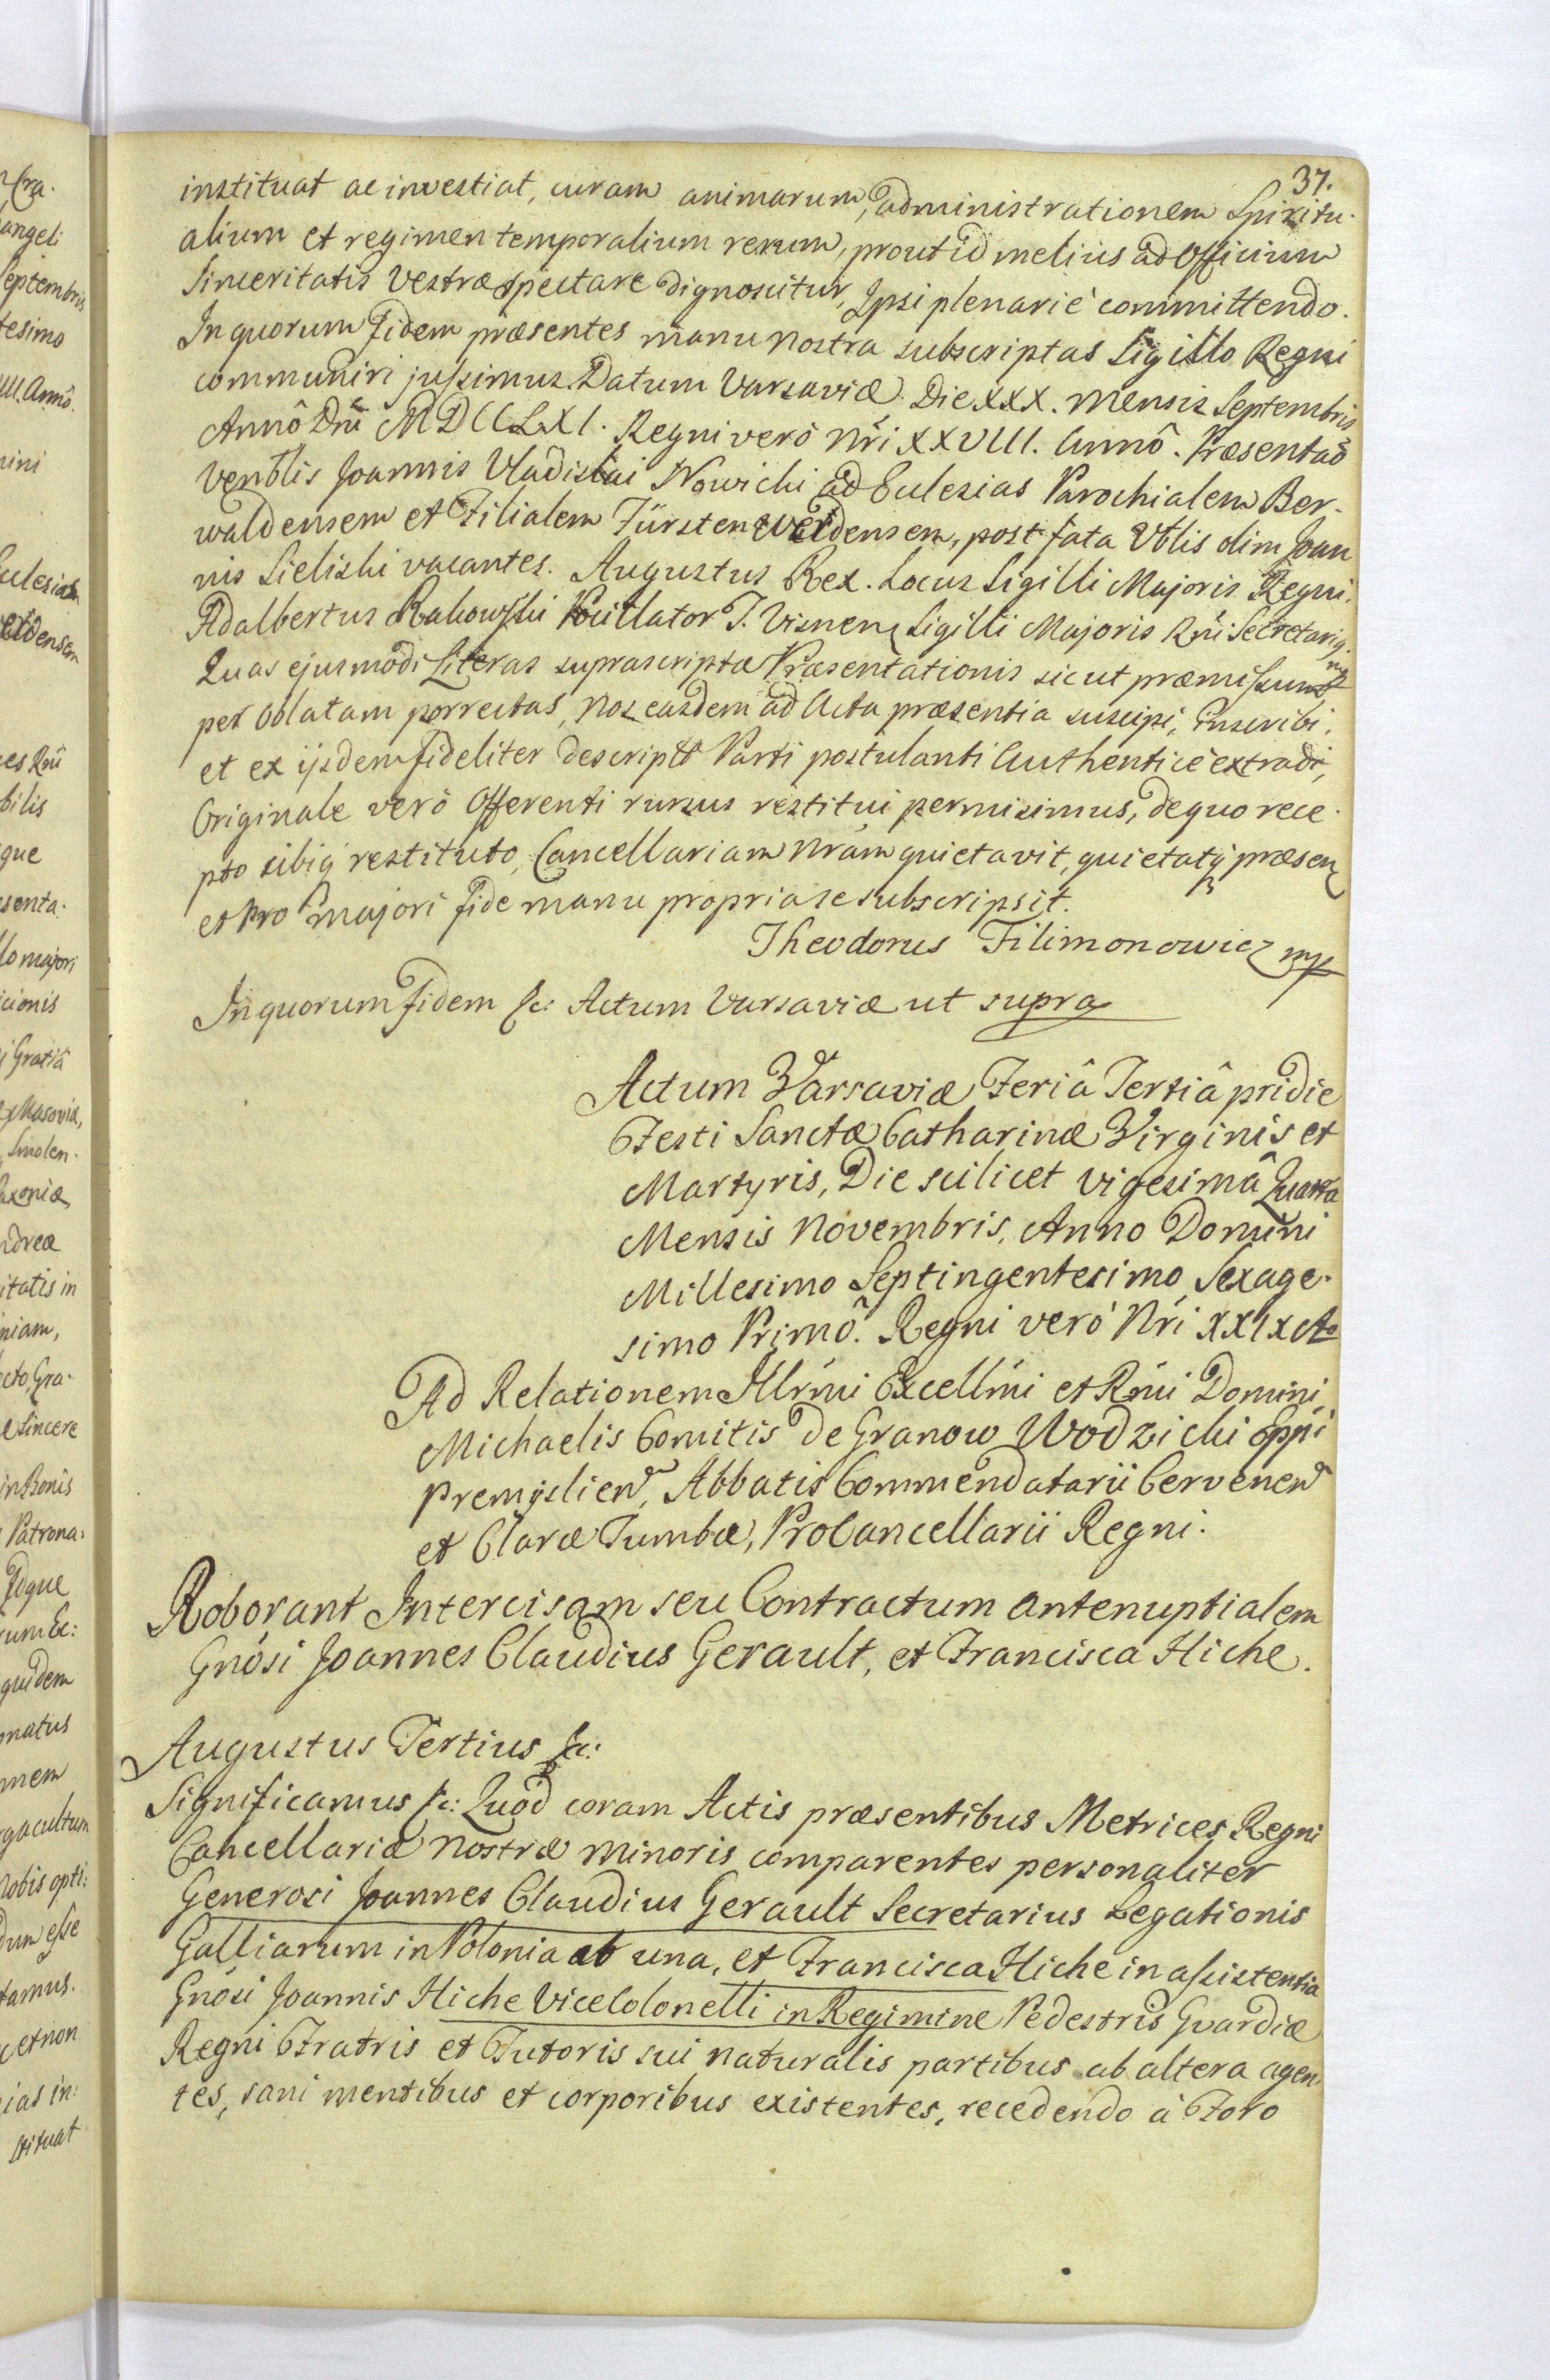 37.
instituat ac investiat, curam animarum, administrationem Spiritu-
alium et regimen temporalium rerum, prout id melius ad Officium
Sinceritatis Vestræ spectare dignoscitur, Ipsi plenariè committendo.
In quorum Fidem præsentes manu nostra subscriptas Sigillo Regni
communiri jussimus. Datum Varsaviæ. Die XXX. Mensis Septembris
Annô Dni MDCCLXI. Regni verò Nri XXVIII. Annô. Præsentao
Venblis Joannis Vladislai Nowicki ad Eclesias Parochialem Ber-
waldensem et Filialem Fürstenwerdensem, post fata Vblis olim Joan
nis Sielishi vacantes. Augustus Rex. Locus Sigilli Majoris Regni.
Adalbertus Rakowski Pocillator T. Visnen Sigilli Majoris Rni Secretariq.
Quas ejusmodi Literas suprascriptæ Præsentationis sicut præmissum
per Oblatam porrectas, Nos easdem ad Acta præsentia suscipi, Inscribi,
et ex ijsdem fideliter descriptas Parti postulanti Authenticè extradi,
Originale verò Offerenti rursus restitui permisimus, de quo rece-
pto sibiq restituto, Cancellariam Nram quietavit, quietatq præsen
et pro majori fide manu propria se subscripsit.
Theodorus Filimonowicz mp
In quorum Fidem &c: Actum Varsaviæ ut supra
Actum Varsaviæ Feriâ Tertiâ pridie
Festi Sanctæ Catharinæ Virginis et
Martyris, Die scilicet vigesimâ Quarta
Mensis Novembris, Anno Domini
Millesimo Septingentesimo Sexage-
simo Primô. Regni verò Nri XXIX Ao
Ad Relationem Illrmi Excellmi et Rmi Domini
Michaelis Comitis de Granow Wodzicki Eppi
Premislien, Abbatis Commendatarii Cervenen
et Claræ Tumbæ, ProCancellarii Regni.
Roborant Intercisam seu Contractum Antenuptialem
Gnosi Joannes Claudius Gerault, et Francisca Hiche.
Augustus Tertius &c:
Significamus &c: Quod coram Actis præsentibus Metrices Regni
Cancellariæ Nostræ Minoris comparentes personaliter
Generosi Joannes Claudius Gerault Secretarius Legationis
Galliarum in Polonia ab una, et Francisca Hiche in assistentia
Gnosi Joannis Hiche ViceColonelli in Regimine Pedestris Gvardiæ
Regni Fratris et Tutoris sui naturalis partibus ab altera agen
tes, sani mentibus et corporibus existentes, recedendo à Foro